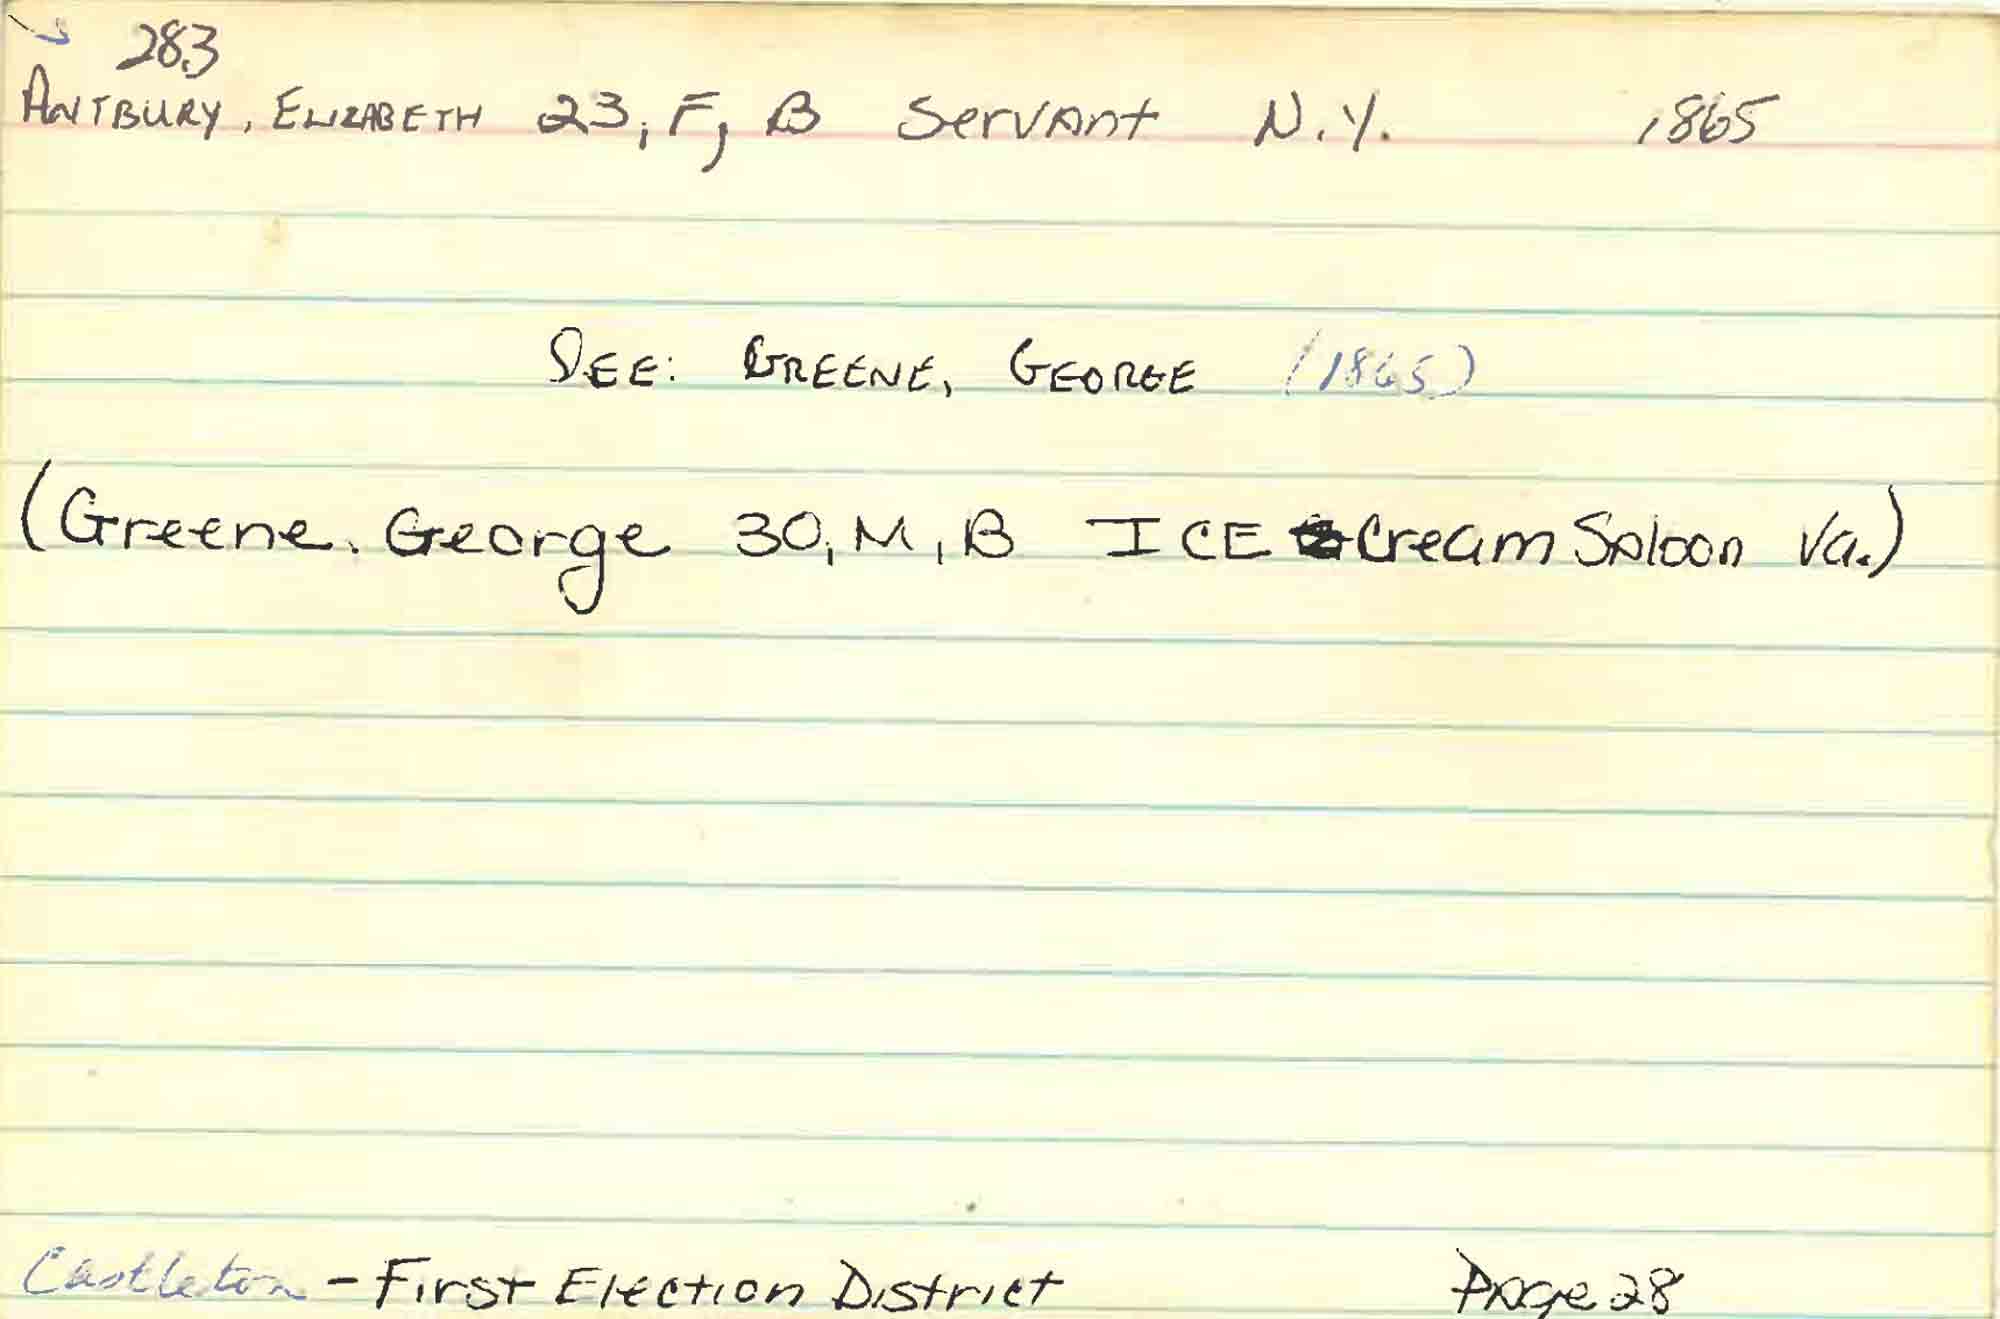 283
ANTBURY, ELIZABETH 23, F, B Servant N.Y. 1865
SEE: GREENE, GEORGE (1865)
(Greene, George 30, M, B ICE Cream Saloon Va.)
Castleton - First Election District Page 28